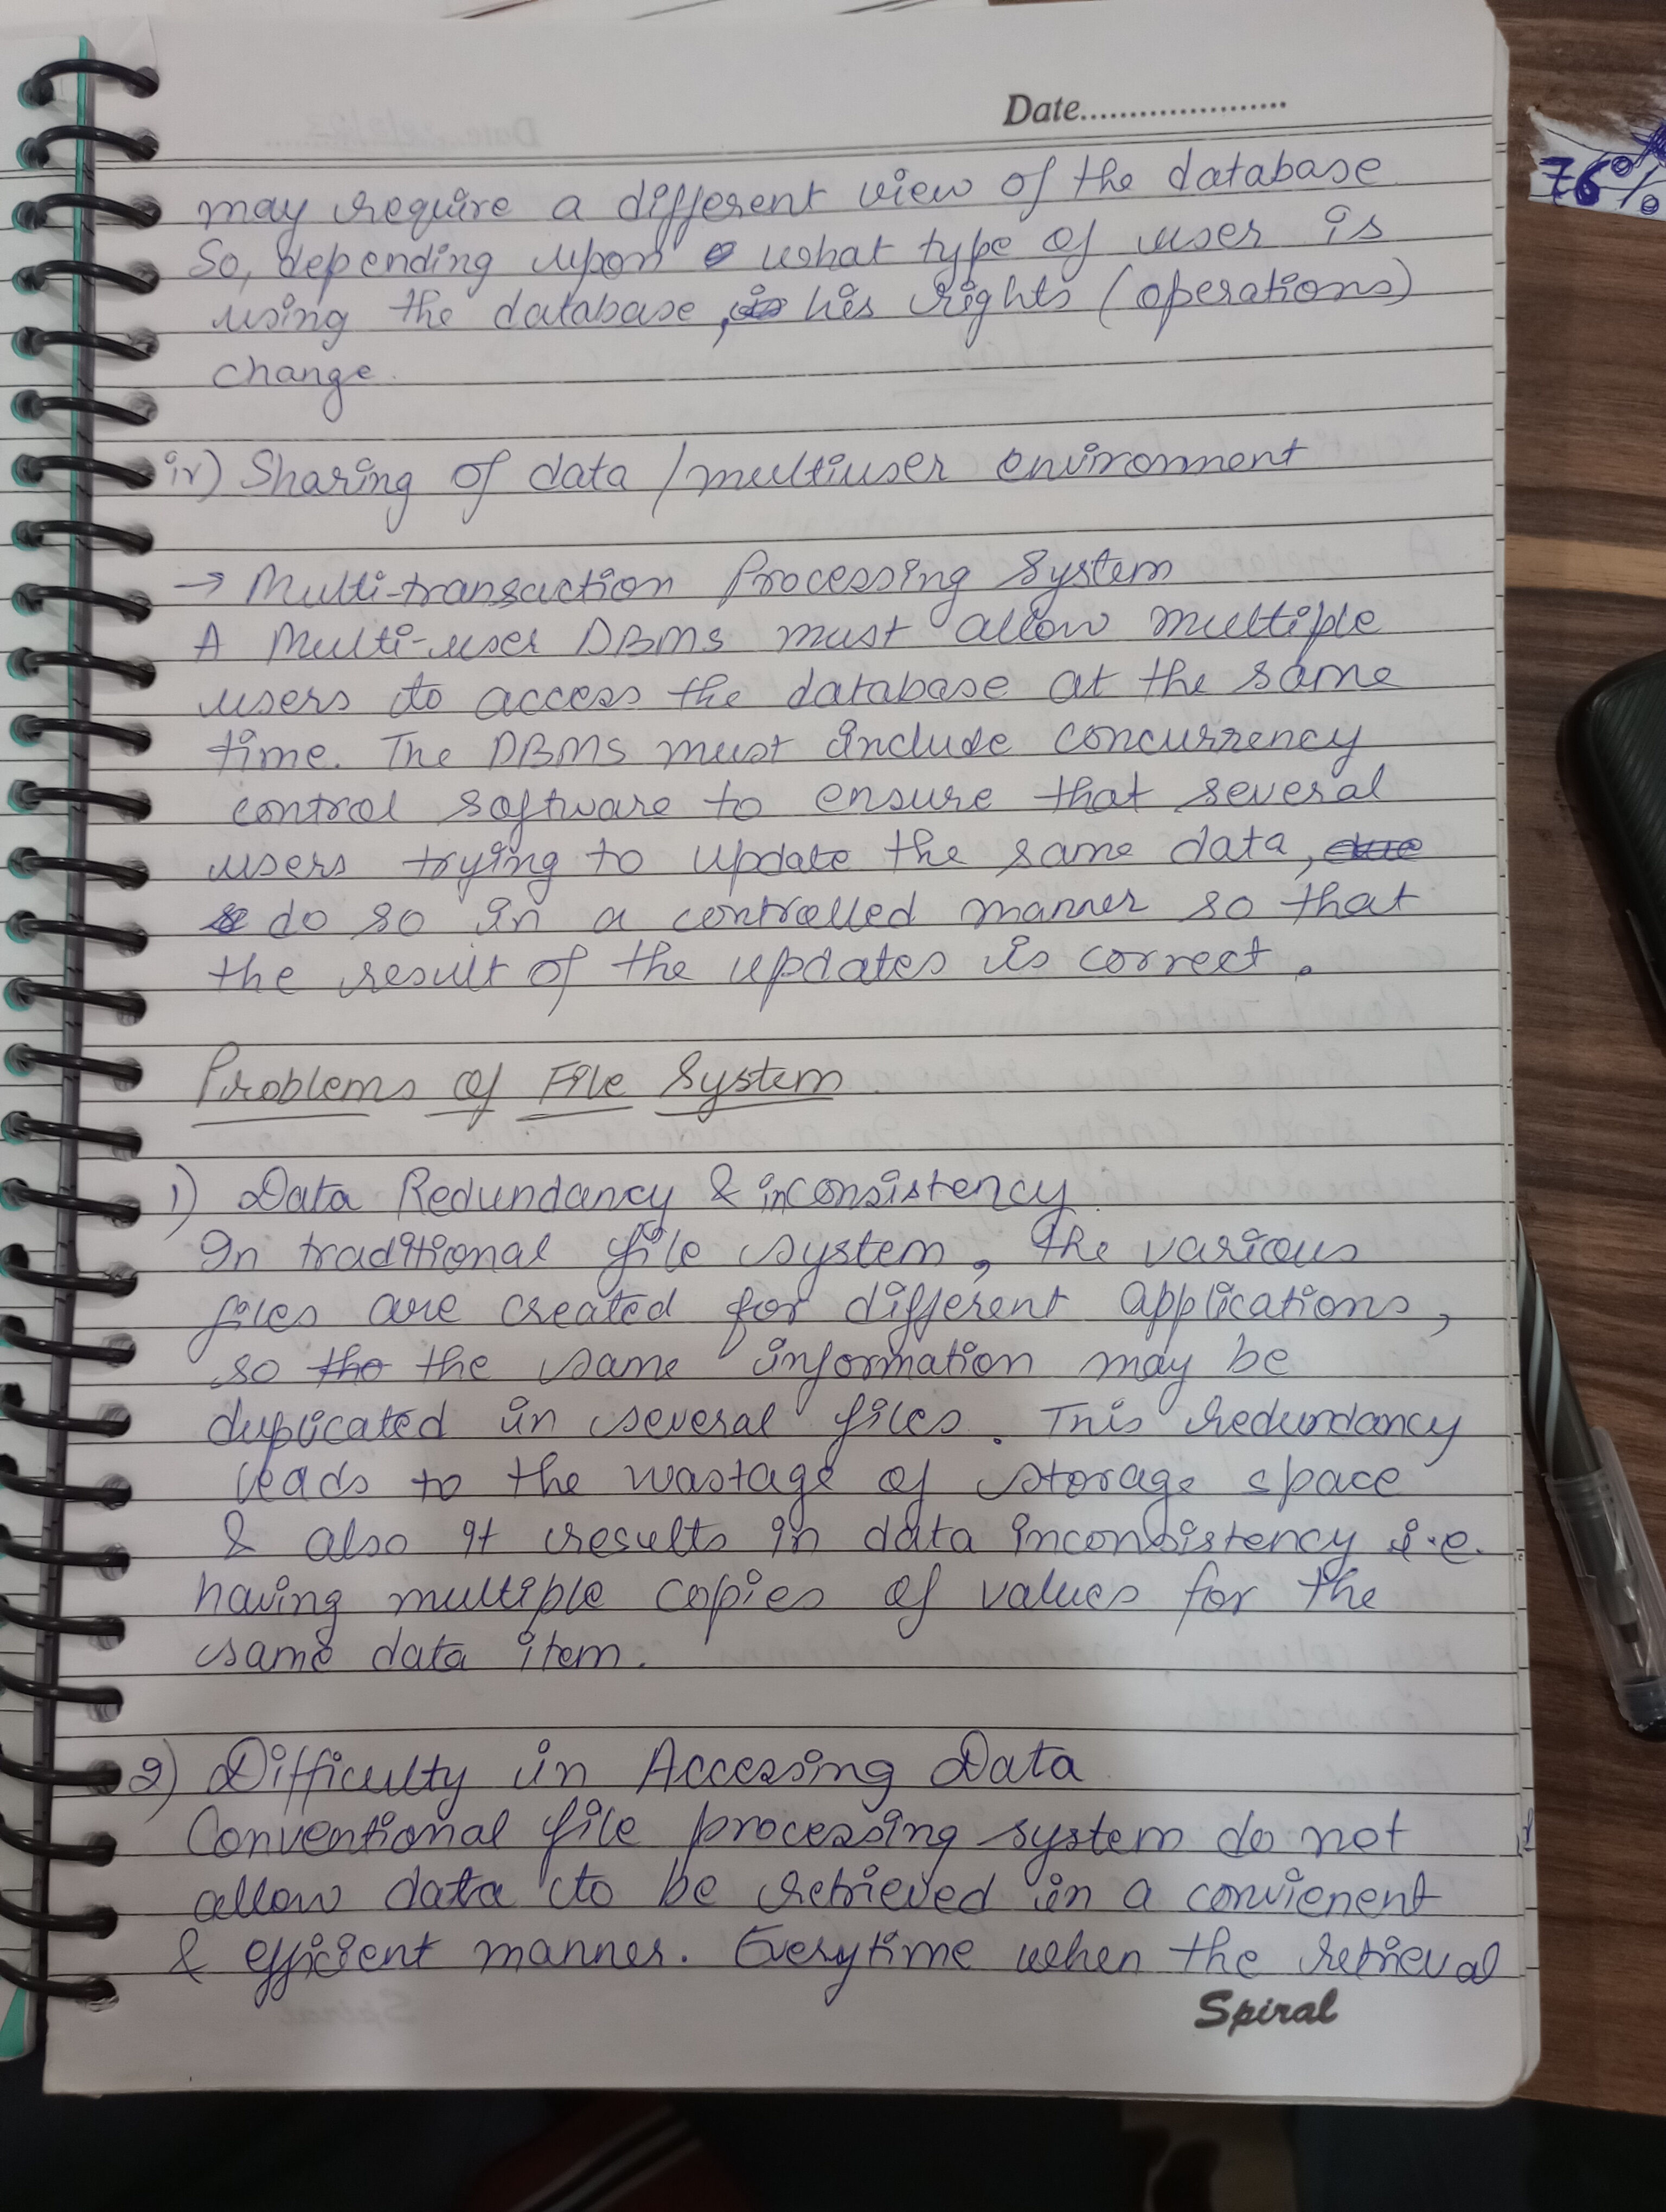 Date....................
76%
may require a different view of the database
So, depending upon what type of user is
using the database, his rights (operations)
change.
iv) Sharing of data / multiuser environment
→ Multi-transaction Processing System
A Multi-user DBMS must allow multiple
users to access the database at the same
time. The DBMS must include concurrency
control software to ensure that several
users trying to update the same data,
do so in a controlled manner so that
the result of the updates is correct.
Problems of File System
1) Data Redundancy & inconsistency
In traditional file system, the various
files are created for different applications,
so tho the same information may be
duplicated in several files. This redundancy
leads to the wastage of storage space
& also it results in data inconsistency i.e.
having multiple copies of values for the
same data item.
2) Difficulty in Accessing Data
Conventional file processing system do not
allow data to be retrieved in a convienent
& efficient manner. Everytime when the retrieval
Spiral